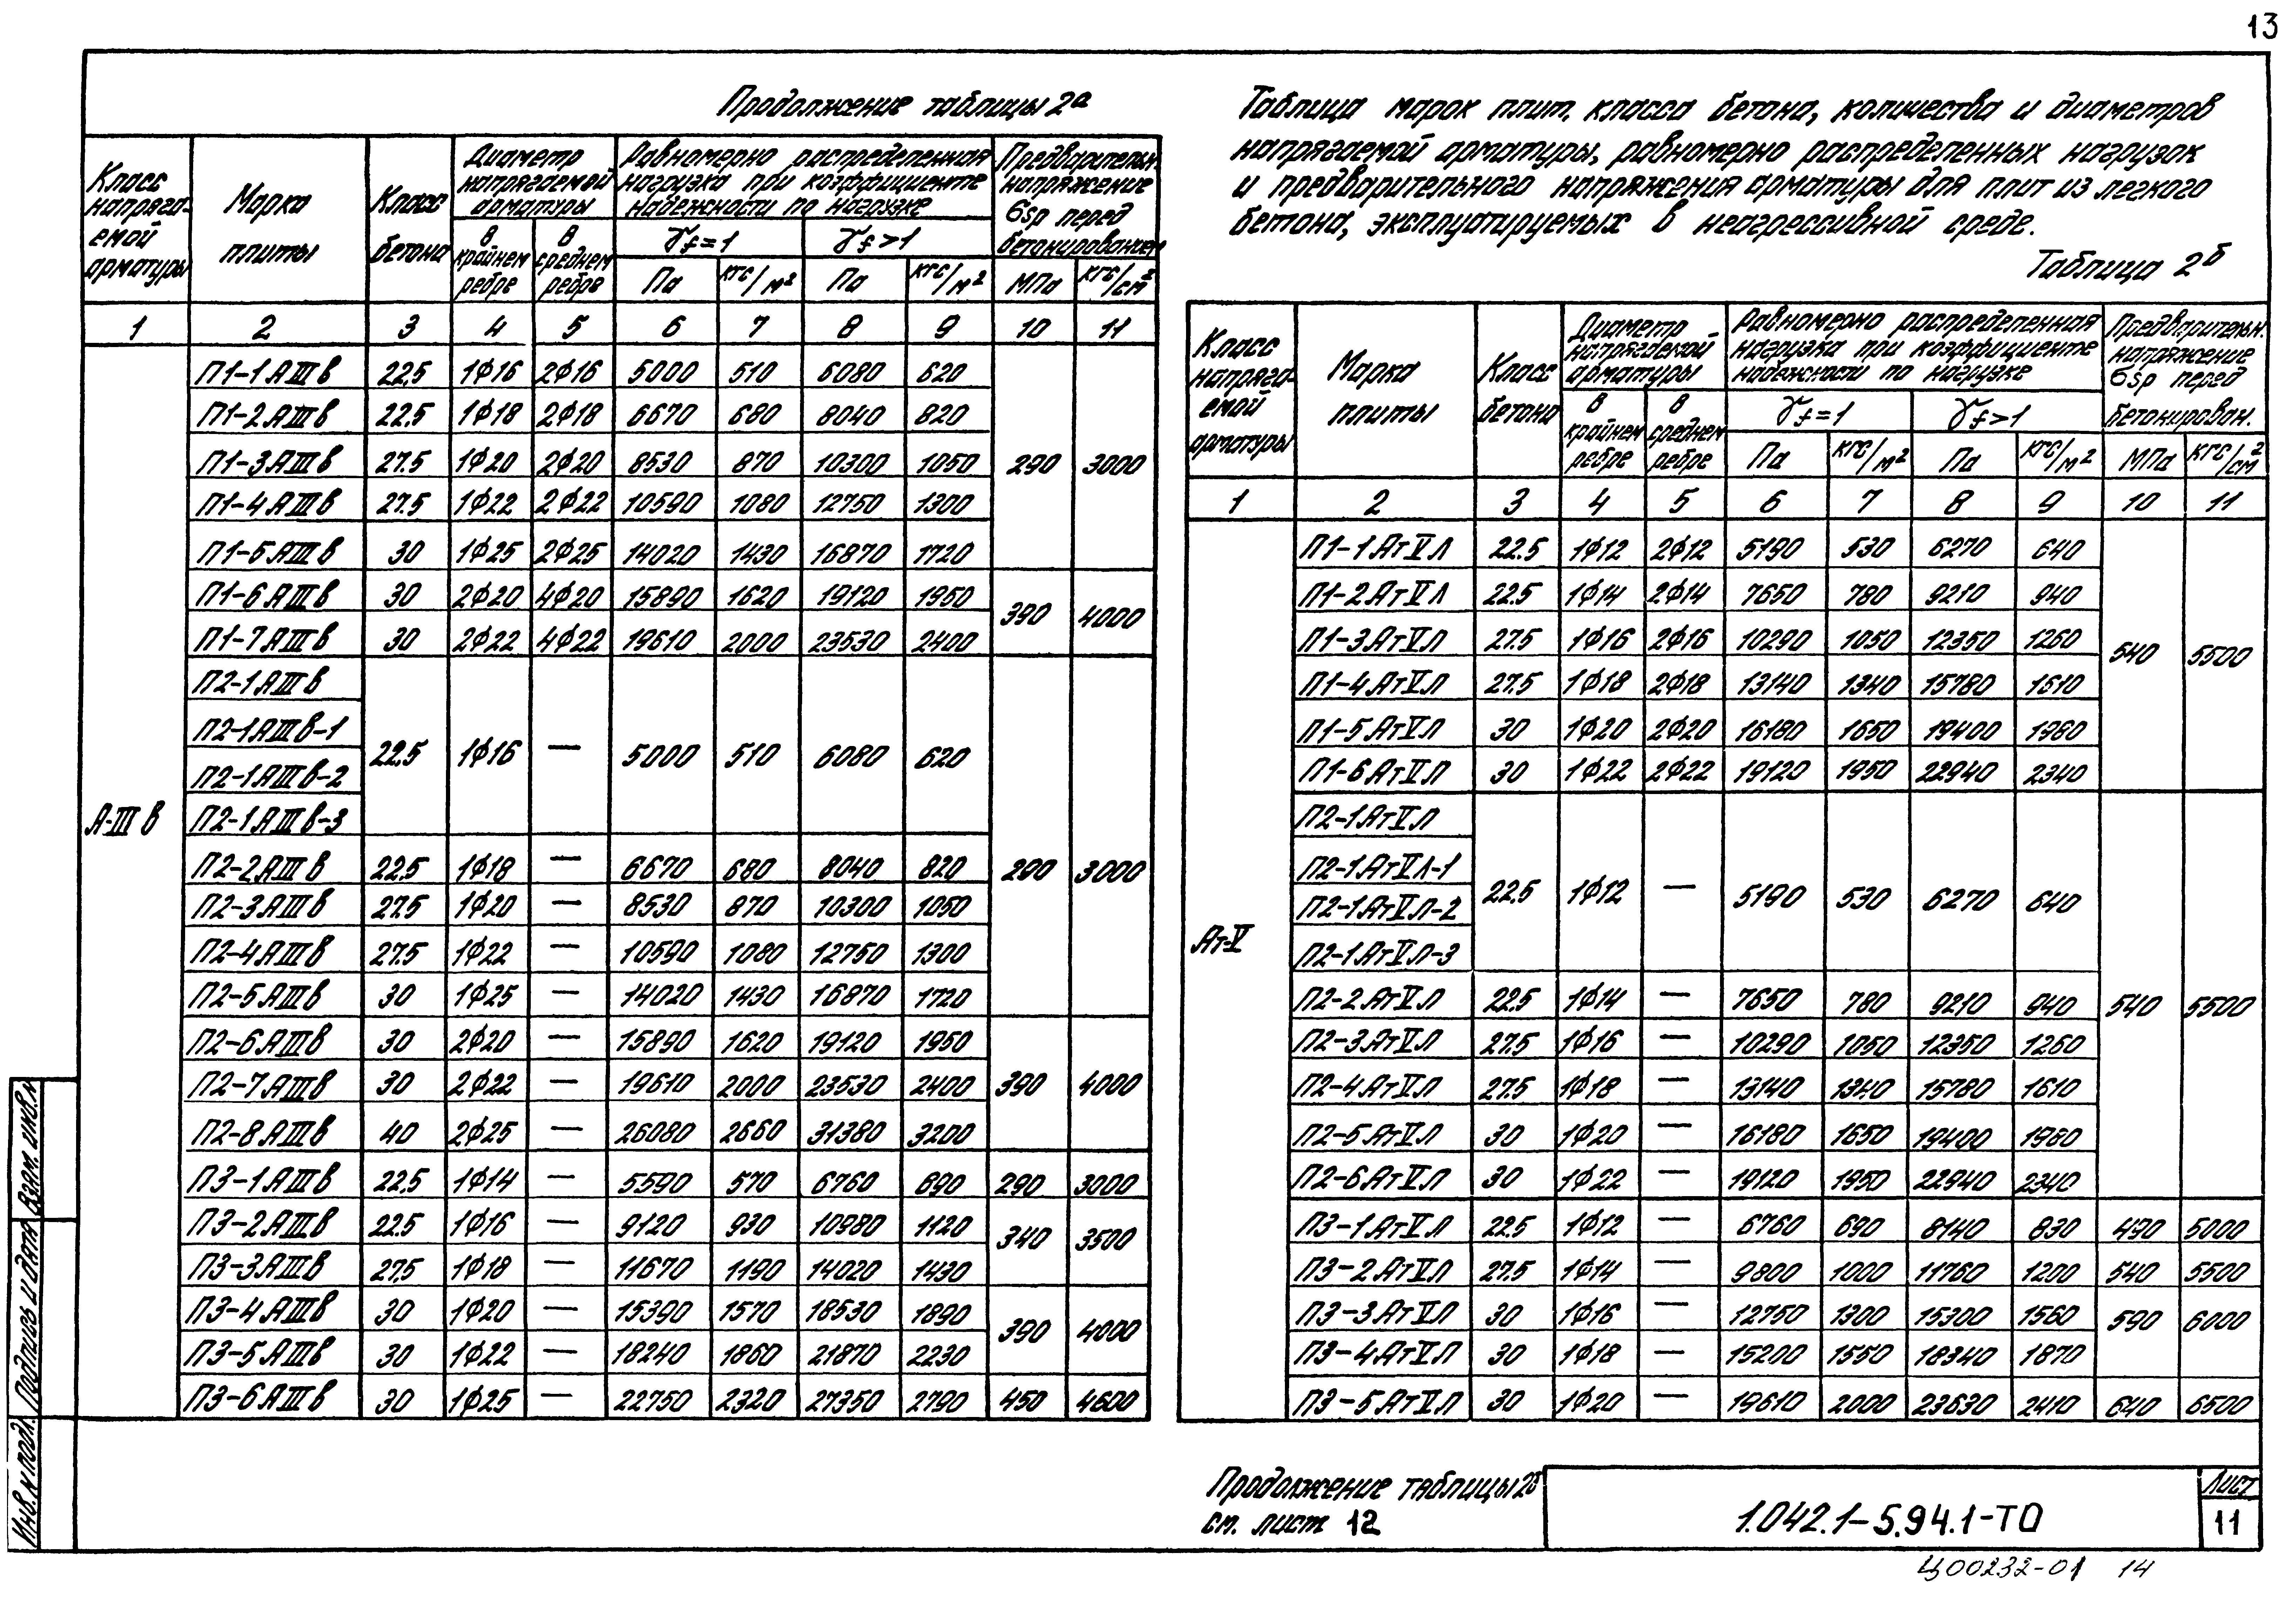 13
Продолжение таблицы 2а
Класс напрягаемой арматуры | Марка плиты | Класс бетона | Диаметр напрягаемой арматуры | Равномерно распределенная нагрузка при коэффициенте надежности по нагрузке | Предварительн. напряжение σsp перед бетонированием
в крайнем ребре | в среднем ребре | γf=1 | γf>1
Па | кгс/м² | Па | кгс/м² | МПа | кгс/см²
1 2 3 4 5 6 7 8 9 10 11
А-IIIв
П1-1АIIIв 22,5 1ф16 2ф16 5000 510 6080 620
П1-2АIIIв 22,5 1ф18 2ф18 6670 680 8040 820
П1-3АIIIв 27.5 1ф20 2ф20 8530 870 10300 1050 290 3000
П1-4АIIIв 27.5 1ф22 2ф22 10590 1080 12750 1300
П1-5АIIIв 30 1ф25 2ф25 14020 1430 16870 1720
П1-6АIIIв 30 2ф20 4ф20 15890 1620 19120 1950 390 4000
П1-7АIIIв 30 2ф22 4ф22 19610 2000 23530 2400
П2-1АIIIв
П2-1АIIIв-1
22,5 1ф16 — 5000 510 6080 620
П2-1АIIIв-2
П2-1АIIIв-3
П2-2АIIIв 22,5 1ф18 — 6670 680 8040 820 290 3000
П2-3АIIIв 27.5 1ф20 — 8530 870 10300 1050
П2-4АIIIв 27.5 1ф22 — 10590 1080 12750 1300
П2-5АIIIв 30 1ф25 — 14020 1430 16870 1720
П2-6АIIIв 30 2ф20 — 15890 1620 19120 1950
П2-7АIIIв 30 2ф22 — 19610 2000 23530 2400 390 4000
П2-8АIIIв 40 2ф25 — 26080 2660 31380 3200
П3-1АIIIв 22,5 1ф14 — 5590 570 6760 690 290 3000
П3-2АIIIв 22.5 1ф16 — 9120 930 10980 1120 340 3500
П3-3АIIIв 27.5 1ф18 — 11670 1190 14020 1430
П3-4АIIIв 30 1ф20 — 15390 1570 18530 1890 390 4000
П3-5АIIIв 30 1ф22 — 18240 1860 21870 2230
П3-6АIIIв 30 1ф25 — 22750 2320 27350 2790 450 4600
Таблица марок плит, класса бетона, количества и диаметров
напрягаемой арматуры, равномерно распределенных нагрузок
и предварительного напряжения арматуры для плит из легкого
бетона, эксплуатируемых в неагрессивной среде.
Таблица 2б
Класс напрягаемой арматуры | Марка плиты | Класс бетона | Диаметр напрягаемой арматуры | Равномерно распределенная нагрузка при коэффициенте надежности по нагрузке | Предварительн. напряжение σsp перед бетонирован.
в крайнем ребре | в среднем ребре | γf=1 | γf>1
Па | кгс/м² | Па | кгс/м² | МПа | кгс/см²
1 2 3 4 5 6 7 8 9 10 11
Ат-V
П1-1АтVл 22.5 1ф12 2ф12 5190 530 6270 640
П1-2АтVл 22.5 1ф14 2ф14 7650 780 9210 940
П1-3АтVл 27.5 1ф16 2ф16 10290 1050 12350 1260 540 5500
П1-4АтVл 27.5 1ф18 2ф18 13140 1340 15780 1610
П1-5АтVл 30 1ф20 2ф20 16180 1650 19400 1980
П1-6АтVл 30 1ф22 2ф22 19120 1950 22940 2340
П2-1АтVл
П2-1АтVл-1
22,5 1ф12 — 5190 530 6270 640
П2-1АтVл-2
П2-1АтVл-3
П2-2АтVл 22.5 1ф14 — 7650 780 9210 940 540 5500
П2-3АтVл 27.5 1ф16 — 10290 1050 12350 1260
П2-4АтVл 27.5 1ф18 — 13140 1340 15780 1610
П2-5АтVл 30 1ф20 — 16180 1650 19400 1980
П2-6АтVл 30 1ф22 — 19120 1950 22940 2340
П3-1АтVл 22.5 1ф12 — 6760 690 8140 830 490 5000
П3-2АтVл 27.5 1ф14 — 9800 1000 11760 1200 540 5500
П3-3АтVл 30 1ф16 — 12750 1300 15300 1560 590 6000
П3-4АтVл 30 1ф18 — 15200 1550 18340 1870
П3-5АтVл 30 1ф20 — 19610 2000 23630 2410 640 6500
Продолжение таблицы 2б
см. лист 12
1.042.1-5.94.1-ТО
Лист
11
Ц00232-01 14
Инв. № подл. Подпись и дата Взам. инв. №